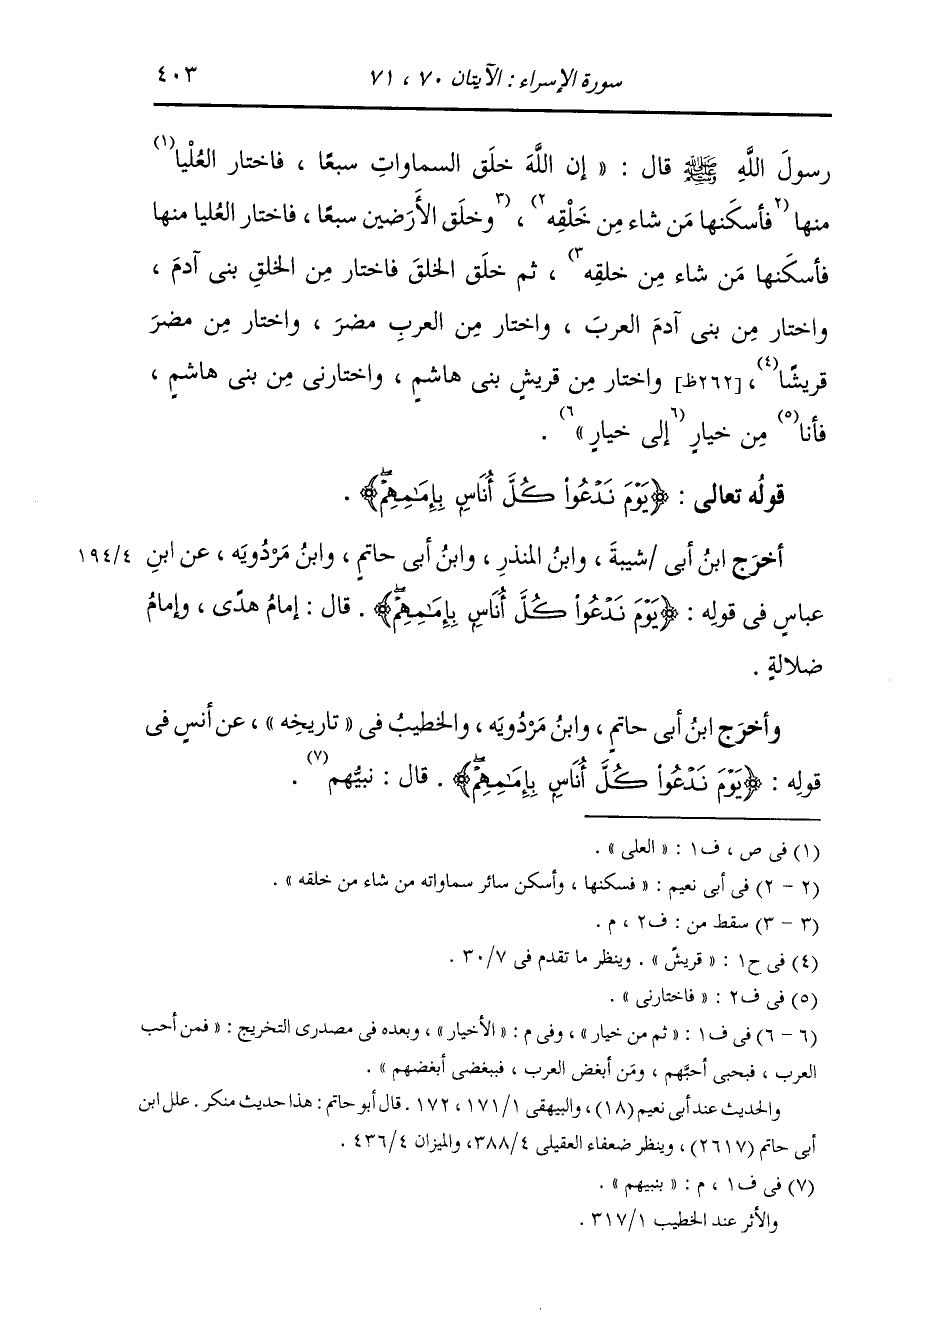 سورة الإسراء : الآيتان ٧٠ ، ٧١ ٤٠٣
رسولَ اللَّهِ ﷺ قال : « إن اللَّهَ خلَق السماواتِ سبعًا ، فاختار العُلْيا(١)
منها (٢فأسكَنها مَن شاء مِن خَلْقِه٢) ، (٣وخلَق الأَرَضين سبعًا ، فاختار العُليا منها
فأسكَنها مَن شاء مِن خلقِه٣) ، ثم خلَق الخلقَ فاختار مِن الخلقِ بنى آدمَ ،
واختار مِن بنى آدمَ العربَ ، واختار مِن العربِ مضرَ ، واختار مِن مضرَ
قريشًا(٤) ، [٢٦٢ظ] واختار مِن قريشٍ بنى هاشمٍ ، واختارنى مِن بنى هاشمٍ ،
فأنا(٥) مِن خيارٍ (٦إلى خيارٍ »٦) .
قولُه تعالى : ﴿يَوْمَ نَدْعُواْ كُلَّ أُنَاسٍ بِإِمَٰمِهِمْۖ﴾ .
أخرَج ابنُ أبى /شيبةَ ، وابنُ المنذرِ ، وابنُ أبى حاتمٍ ، وابنُ مَرْدُويَه ، عن ابنِ ١٩٤/٤
عباسٍ فى قولِه : ﴿يَوْمَ نَدْعُواْ كُلَّ أُنَاسٍ بِإِمَٰمِهِمْۖ﴾ . قال : إمامُ هدًى ، وإمامُ
ضلالةٍ .
وأخرَج ابنُ أبى حاتمٍ ، وابنُ مَرْدُويَه ، والخطيبُ فى « تاريخِه » ، عن أنسٍ فى
قولِه : ﴿يَوْمَ نَدْعُواْ كُلَّ أُنَاسٍ بِإِمَٰمِهِمْۖ﴾ . قال : نبيُّهم(٧) .
(١) فى ص ، ف١ : « العلى » .
(٢ - ٢) فى أبى نعيم : « فسكنها ، وأسكن سائر سماواته من شاء من خلقه » .
(٣ - ٣) سقط من : ف٢ ، م .
(٤) فى ح١ : « قريش » . وينظر ما تقدم فى ٣٠/٧ .
(٥) فى ف٢ : « فاختارنى » .
(٦ - ٦) فى ف١ : « ثم من خيار » ، وفى م : « الأخيار » ، وبعده فى مصدرى التخريج : « فمن أحب
العرب ، فبحبى أحبَّهم ، ومَن أبغض العرب ، فببغضى أبغضهم » .
والحديث عند أبى نعيم (١٨) ، والبيهقى ١٧١/١ ، ١٧٢ . قال أبو حاتم : هذا حديث منكر . علل ابن
أبى حاتم (٢٦١٧) ، وينظر ضعفاء العقيلى ٣٨٨/٤ ، والميزان ٤٣٦/٤ .
(٧) فى ف١ ، م : « بنبيهم » .
والأثر عند الخطيب ٣١٧/١ .